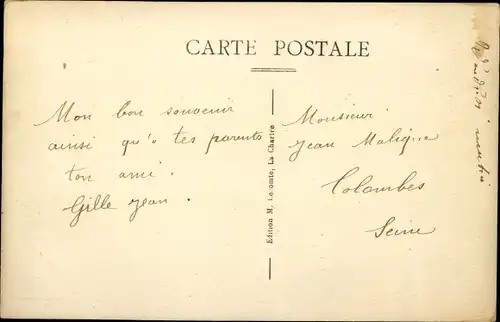 CARTE POSTALE
Mon bon souvenir
ainsi qu'à tes parents
ton ami.
Gille Jean.
Edition M. Lecomte, La Chartre
Monsieur
Jean Maligne
Colombes
Seine